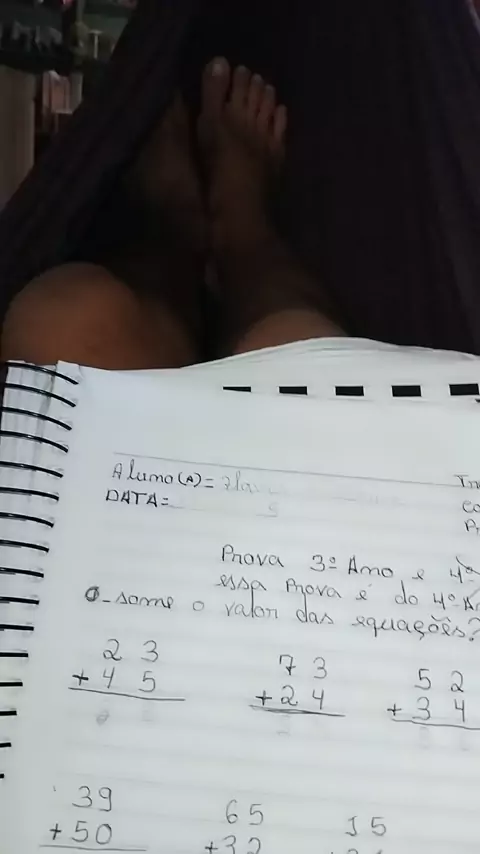 Aluno(A)=
DATA=
Prova 3º Ano e 4º
essa prova é do 4º A
some o valor das equações?
23 73 52
+45 +24 +34
39 65 15
+50 +32